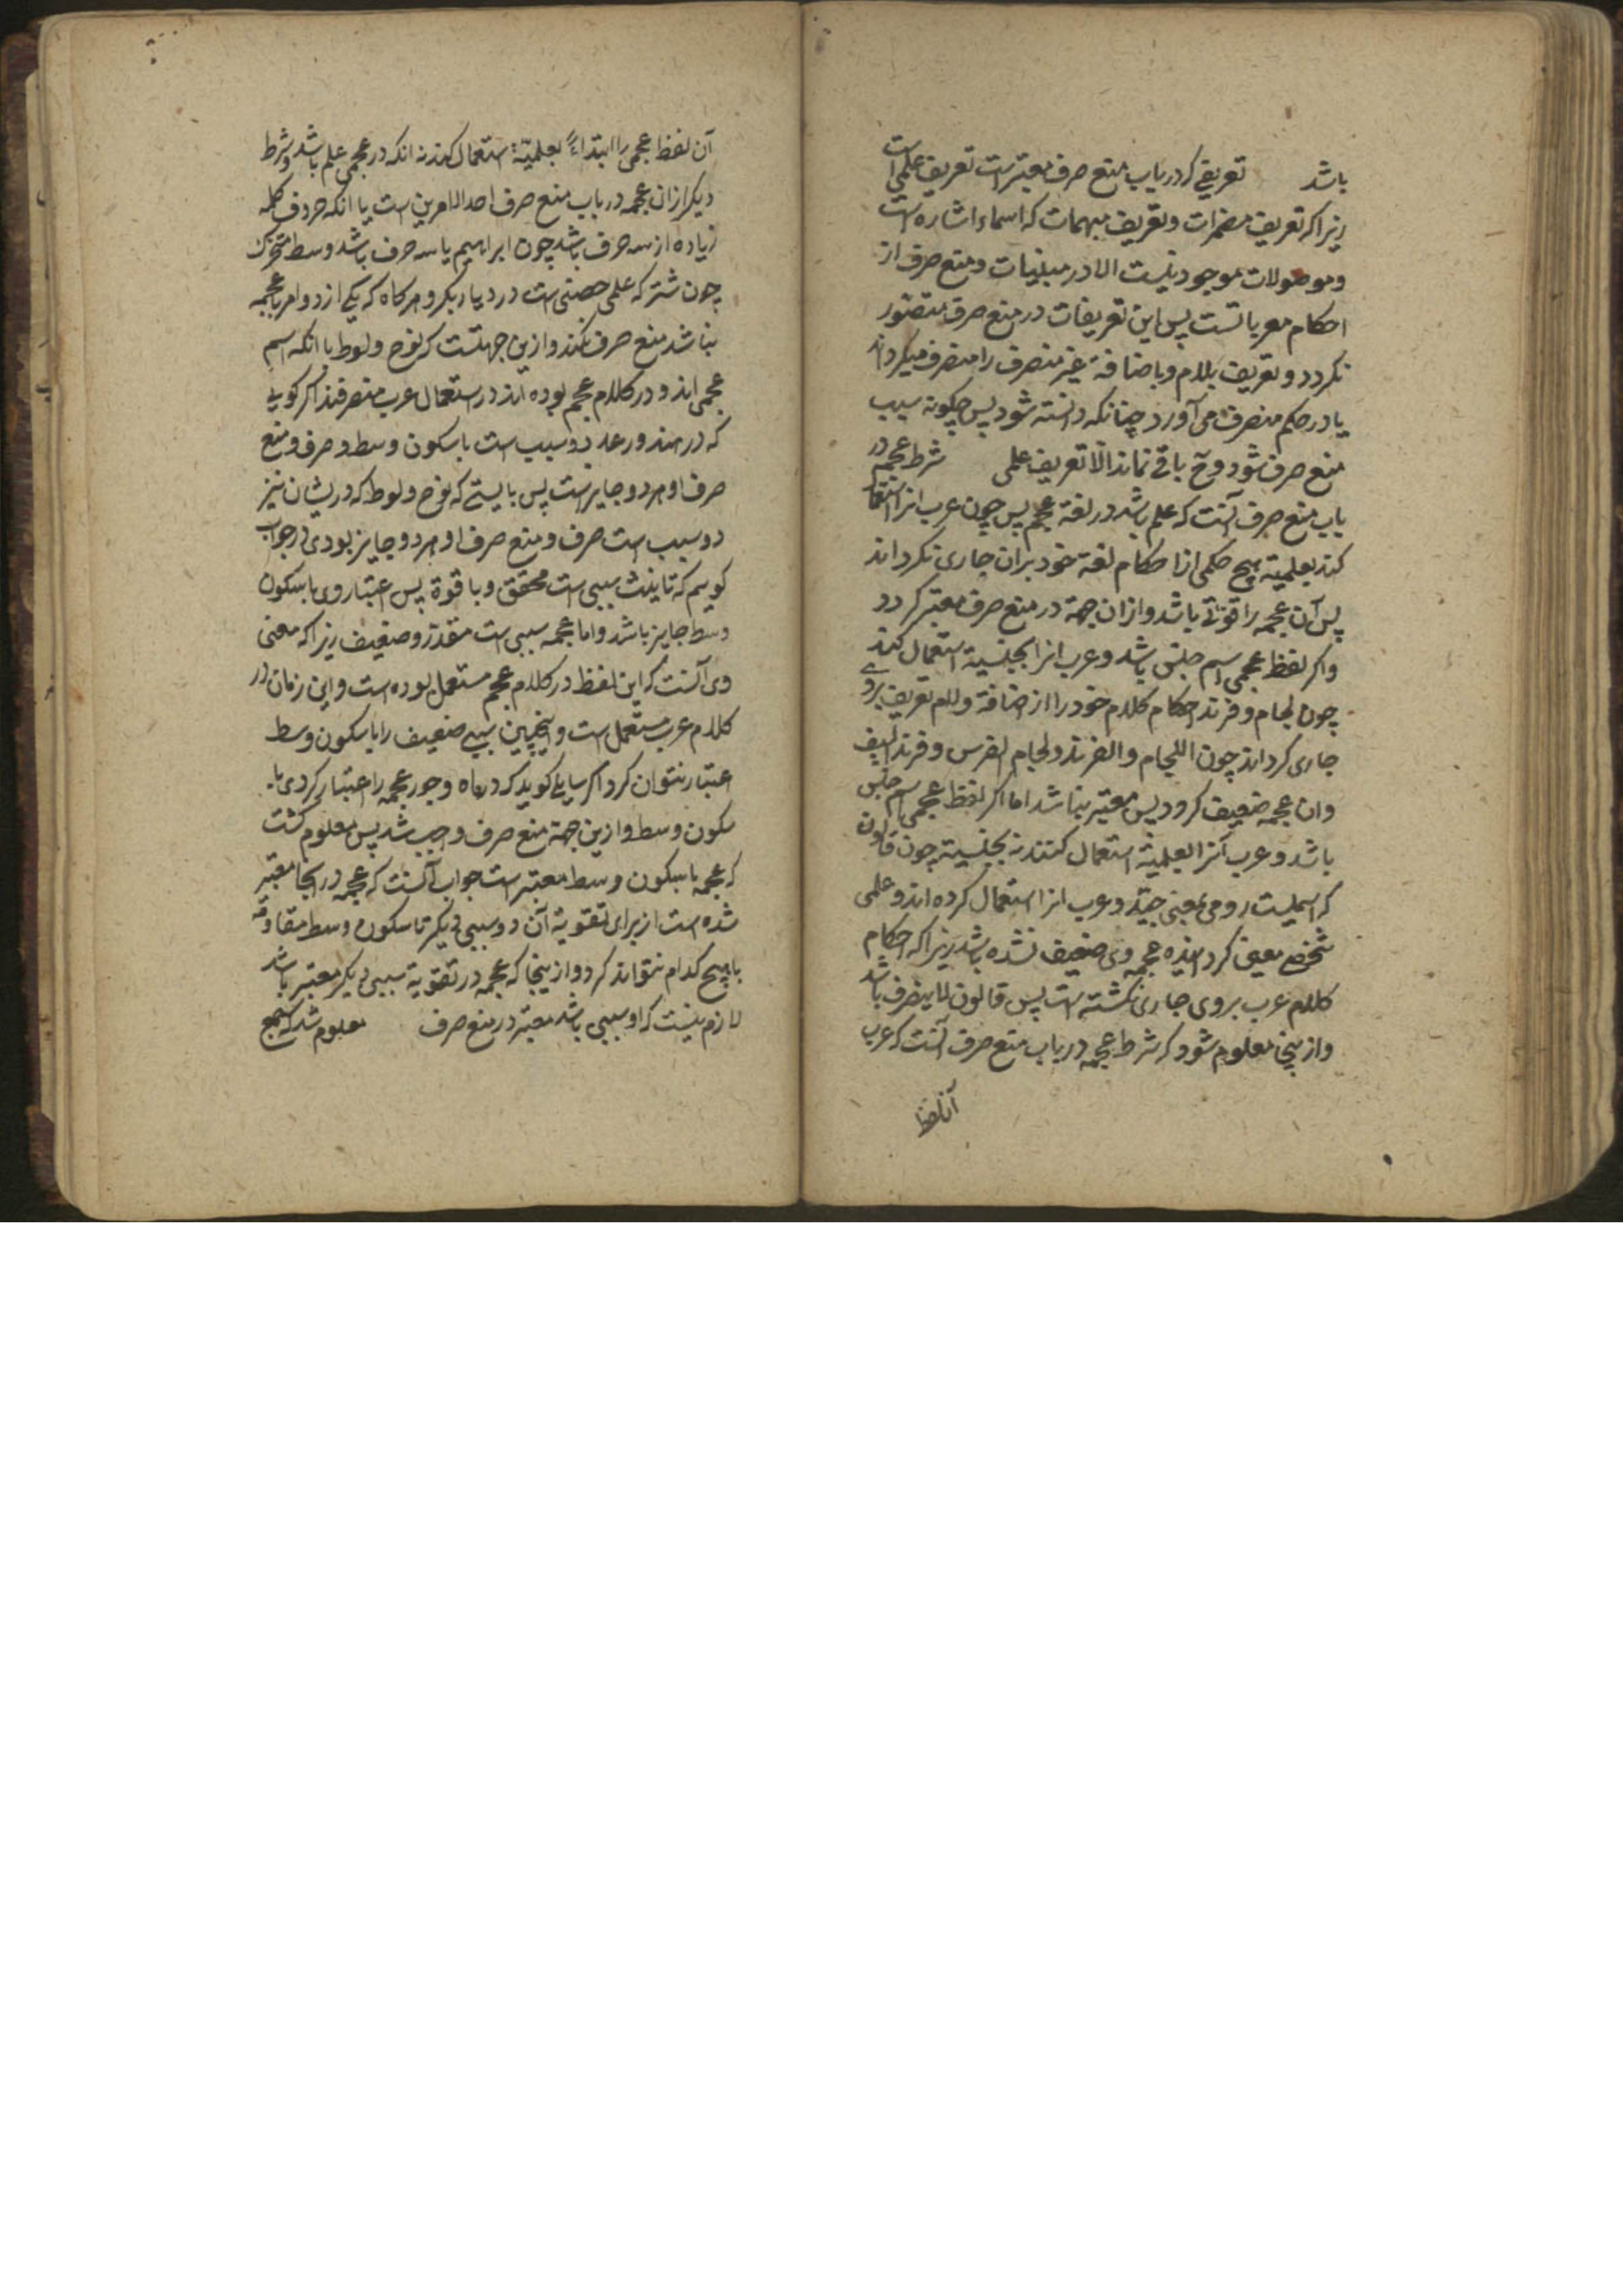 باشد تعریفی که در باب منع صرف معتبر است تعریف علمی است
زیرا که تعریف مضمرات و تعریف مبهمات که اسماء اشاره است
و موصولات موجود نیست الا در مبنیات و منع صرف از
احکام معرباتست پس این تعریفات در منع صرف متصور
نکردد و تعریف بلام و باضافة غیر منصرف را منصرف میکرداند
یا در حکم منصرف می آورد چنانکه دانسته شود پس چکونه سبب
منع صرف شود و ح باقی نماند الا تعریف علمی شرط عجمه در
باب منع صرف آنست که علم باشد در لغة عجم پس چون عرب انرا
کند بعلمیة هیچ حکمی از احکام لغة خود بران جاری نکرداند
پس آن عجمه را قوتی باشد و ازان جهة در منع صرف معتبر کردد
و اکر لفظ عجمی اسم جنس باشد و عرب انرا بجنسیة استعمال کند
چون لجام و فرند احکام کلام خود را از اضافة و لام تعریف بروی
جاری کرداند چون اللجام و الفرند و لجام الفرس و فرند السیف
و ان عجمه ضعیف کردد پس معتبر نباشد اما اکر لفظ عجمی اسم جنس
باشد و عرب آنرا بعلمیة استعمال کنند نه بجنسیة چون قالون
که اسمیست رومی بمعنی جید و عرب انرا استعمال کرده اند و علمی
شخص معین کرد اینده عجمه وی ضعیف نشده باشد زیرا که احکام
کلام عرب بروی جاری نکشته است پس قالون لا ینصرف باشد
و از ینجا معلوم شود که شرط عجمه در باب منع صرف آنست که عرب
آن لفظ
آن لفظ عجمی را ابتداءً بعلمیّة استعمال کنند نه انکه در عجمی علم باشد و شرط
دیکر ازان عجمه در باب منع صرف احد الامرین است یا انکه حروف کلمه
زیاده از سه حرف باشد چون ابراهیم یا سه حرف باشد وسط متحرک
چون شتر که علمی حصنی است در دیار بکر و هرکاه که یکی از دو امر با عجمه
نباشد منع صرف نکند و ازین جهتست که نوح و لوط با انکه اسم
عجمی اند و در کلام عجم بوده اند در استعمال عرب منصرفند اکر کویی
که در هند و رعد دو سبب است با سکون وسط و صرف و منع
صرف او هردو جایز است پس بایستی که نوح و لوط که در یشان نیز
دو سبب است صرف و منع صرف او هر دو جایز بودی در جواب
کوییم که تانیث سببی است محقق و با قوة پس اعتبار وی با سکون
وسط جایز باشد و اما عجمه سببی است مقدر و ضعیف زیرا که معنی
وی آنست که این لفظ در کلام عجم مستعمل بوده است و این زمان در
کلام عرب مستعمل است و اینچنین سببی ضعیف را با سکون وسط
اعتبار نتوان کرد اکر سایلی کوید که در ماه و جور عجمه را اعتبار کردی با
سکون وسط و ازین جهة منع صرف واجب شد پس معلوم کشت
که عجمه با سکون وسط معتبر است جواب آنست که عجمه در انجا معتبر
شده است از برای تقویة آن دو سببی دیکر تا سکون وسط مقاومة
با هیچ کدام نتواند کرد و از ینجا که عجمه در تقویة سببی دیکر معتبر باشد
لازم نیست که او سببی باشد معتبر در منع صرف معلوم شد که جمع